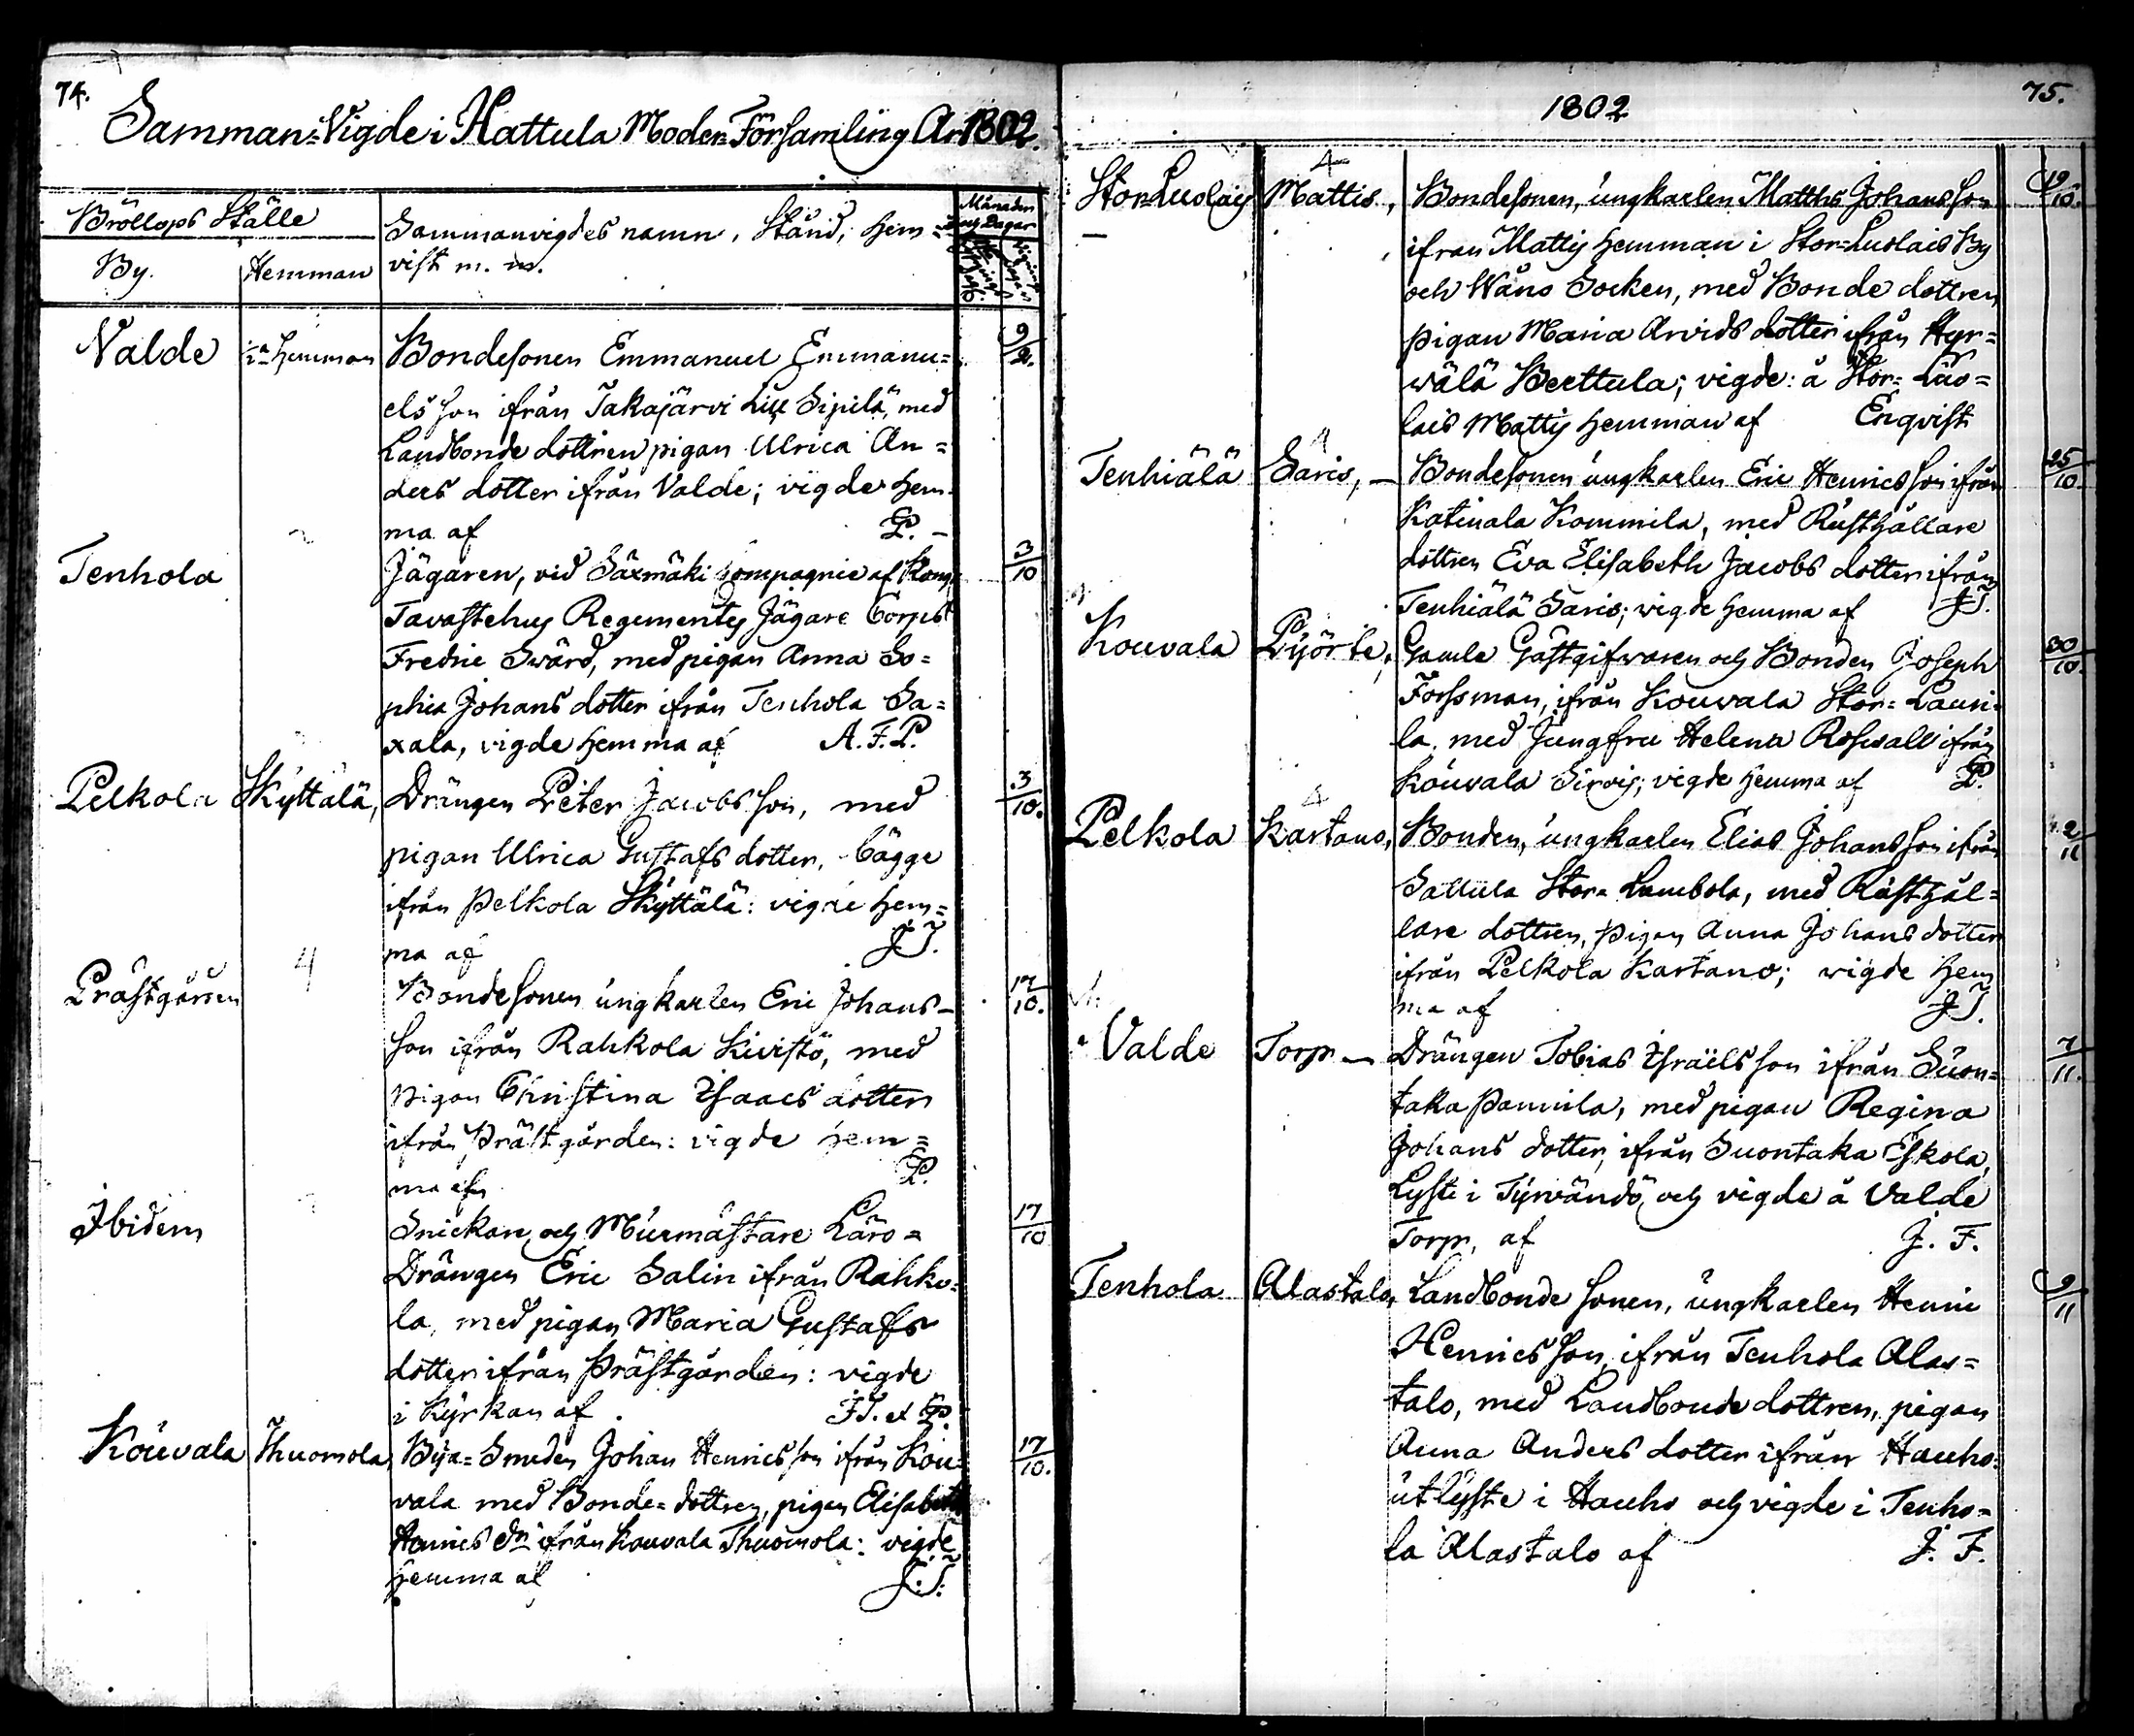 74.
Samman-Vigde i Hattula Moder-Församling År 1802.
Bröllops Ställe
By.
Hemman
Sammanvigdes namn, Stånd, hem=
vist m. m.
Månader
och Dagar
Valde
Hemman
Bondesonen Emmanuel Emmanu=
9/2.
elsson ifrån Takajärvi Sipilä, med
Landbonde dottren pigan Ulrica An=
ders dotter ifrån Valde; vigde hem-
ma af P.
Tenhola
Jägaren, vid Säxmäki Compagnie af
3/10
Tavastehus Regementes Jägare Corps
Fredric Swärd, med pigan Anna So=
phia Johans dotter ifrån Tenhola Sa=
xala, vigde hemma af A. F. P.
Pelkola Skyttälä,
Drängen Peter Jacobs son, med
3/10.
pigan Ulrica Gustafs dotter, bägge
ifrån Pelkola Skyttälä: vigde hem=
ma af J T.
Prästgården
4
Bondesonen ungkarlen Eric Johans-
17/10.
son ifrån Rahkola Kivistö, med
pigan Christina Isaacs dotter
ifrån Prästgården: vigde hem=
ma af P.
Ibidem
Snickare och Murmästare Läro=
17/10
Drängen Eric Salin ifrån Rahko=
la, med pigan Maria Gustafs
dotter ifrån Prästgården: vigde
i Kyrkan af J T. et P.
Kouvala Thuomola,
Bya=Smeden Johan Henrics son ifrån Kou=
17/10.
vala med Bonde=dottren, pigan Elisabeth
Henrics dr ifrån Kouvala Thuomola: vigde
hemma af J. T.
75.
1802
Stor-Luolais Mattis,
4
Bondesonen, ungkarlen Matths Johansson
19/10.
ifrån Mattis hemman i Stor=Luolais By
och Wånå Socken, med Bonde dottren
pigan Maria Arvids dotter ifrån Hyr=
wälä Berttula; vigde: å Stor=Luo=
lais Mattis hemman af Enqvist
Tenhiälä Saris, –
4
Bondesonen ungkarlen Eric Henrics son ifrån
25/10.
Katinala Kommila, med Rusthållare
dottren Eva Elisabeth Jacobs dotter ifrån
Tenhiälä Saris; vigde hemma af J T.
Kouvala Pyörte,
Gamle Gästgifvaren och Bonden Joseph
30/10.
Forssman, ifrån Kouvala Stor=Lauri=
la, med Jungfru Helena Roswall ifrån
Kouvala Sirvis; vigde hemma af P.
Pelkola Kartano,
4
Bonden, ungkarlen Elias Johansson ifrån
2/11
Sattula Stor=Lambola, med Rusthål=
lare dottren, pigan Anna Johans dotter
ifrån Pelkola Kartano; vigde hem
ma af J T.
Valde Torp –
Drängen Tobias Israëls son ifrån Suon=
7/11.
taka Pannila, med pigan Regina
Johans dotter, ifrån Suontaka Eskola,
Lyste i Tyrwändö och vigde å Valde
Torp, af J. F.
Tenhola Alastalo,
Landbonde sonen, ungkarlen Henric
9/11
Henrics son, ifrån Tenhola Alas=
talo, med Landbonde dottren, pigan
Anna Anders dotter ifrån Hauho:
utlyste i Hauho och vigde i Tenho=
la Alastalo af J. F.